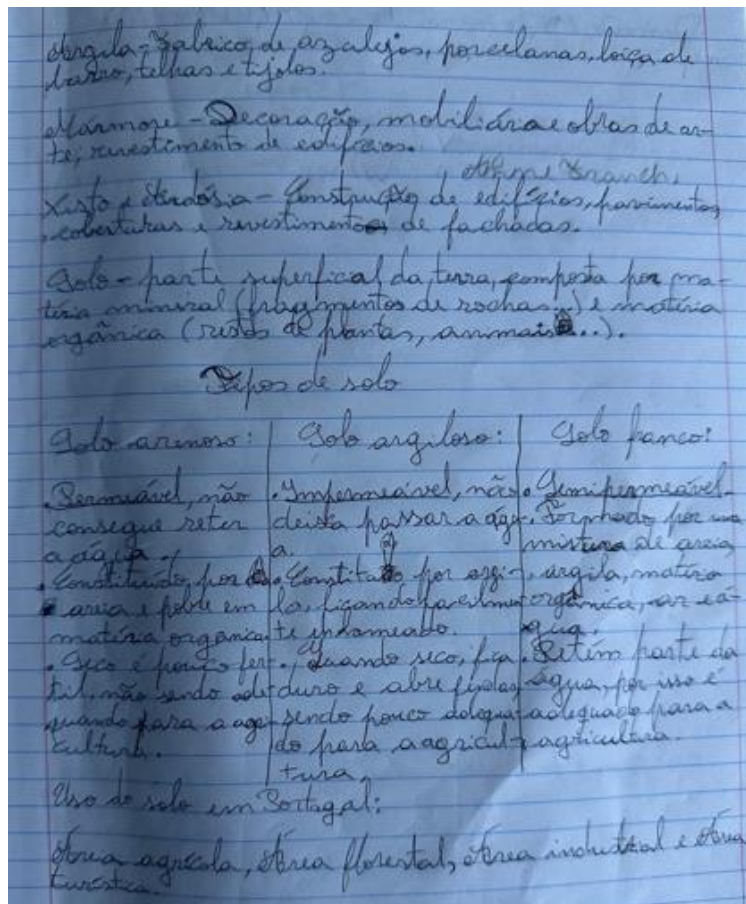 Argila - Fabrico, de azulejos, porcelanas, loiça de
barro, telhas e tijolos.
Mármore - Decoração, mobiliária e obras de ar-
te, revestimento de edifícios.
Xisto e Ardósia - Construção de edifícios, pavimentos,
coberturas e revestimentos de fachadas.
Solo - parte superfical da terra, composta por ma-
téria mineral (fragmentos de rochas...) e matéria
orgânica (restos de plantas, animais...).
Tipos de solo
Solo arenoso:
. Permeável, não
consegue reter
a água.
. Constituído, por
areia e pobre em
matéria organica
. Seco é pouco fer-
til, não sendo ade-
quando para a agri-
cultura.
Solo argiloso:
. Impermeável, não
deixa passar a águ-
a.
. Constituido por argi-
la, ficando facilmen-
te enlameado.
. Quando seco, fica
duro e abre fendas,
sendo pouco adequa-
do para a agricul-
tura.
Solo franco:
. Semipermeável.
. Formado por uma
mistura de areia,
argila, matéria
orgânica, ar e á-
gua.
. Retém parte da
água, por isso é
adequado para a
agricultura.
Uso do solo em Portugal:
Área agrícola, Área florestal, Área industrial e Área
turística.